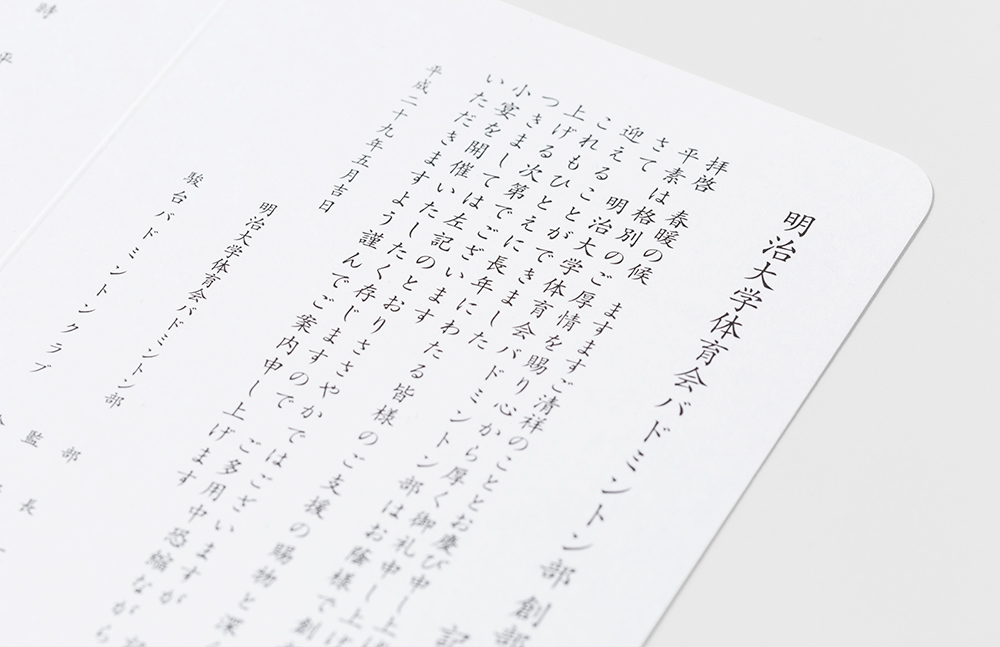 明治大学体育会バドミントン部 創部
記
拝啓 春暖の候 ますますご清祥のこととお慶び申し上げ
平素は格別のご厚情を賜り心から厚く御礼申し上げ
さて 明治大学体育会バドミントン部はお陰様で創
迎えることができました
これもひとえに長年にわたる皆様のご支援の賜物と深
上げる次第でございます
つきましては左記のとおりささやかではございますが
小宴を開催いたしたく存じますので ご多用中恐縮ながら
いただきますよう謹んでご案内申し上げます
平成二十九年五月吉日
明治大学体育会バドミントン部
部 長
監
駿台バドミントンクラブ
時
平